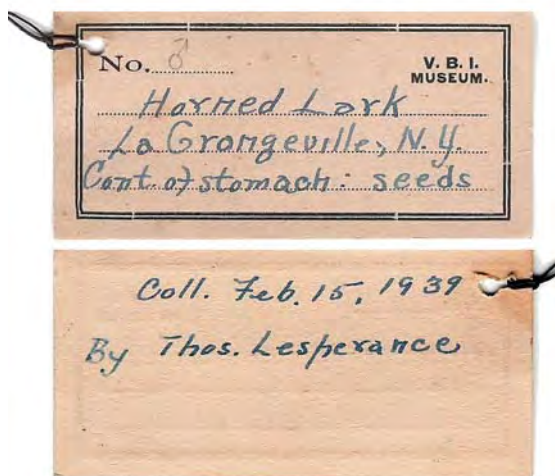 No. ♂
V. B. I.
MUSEUM.
Horned Lark
La Grangeville, N.Y.
Cont. of stomach: seeds
Coll. Feb. 15, 1939
By Thos. Lesperance